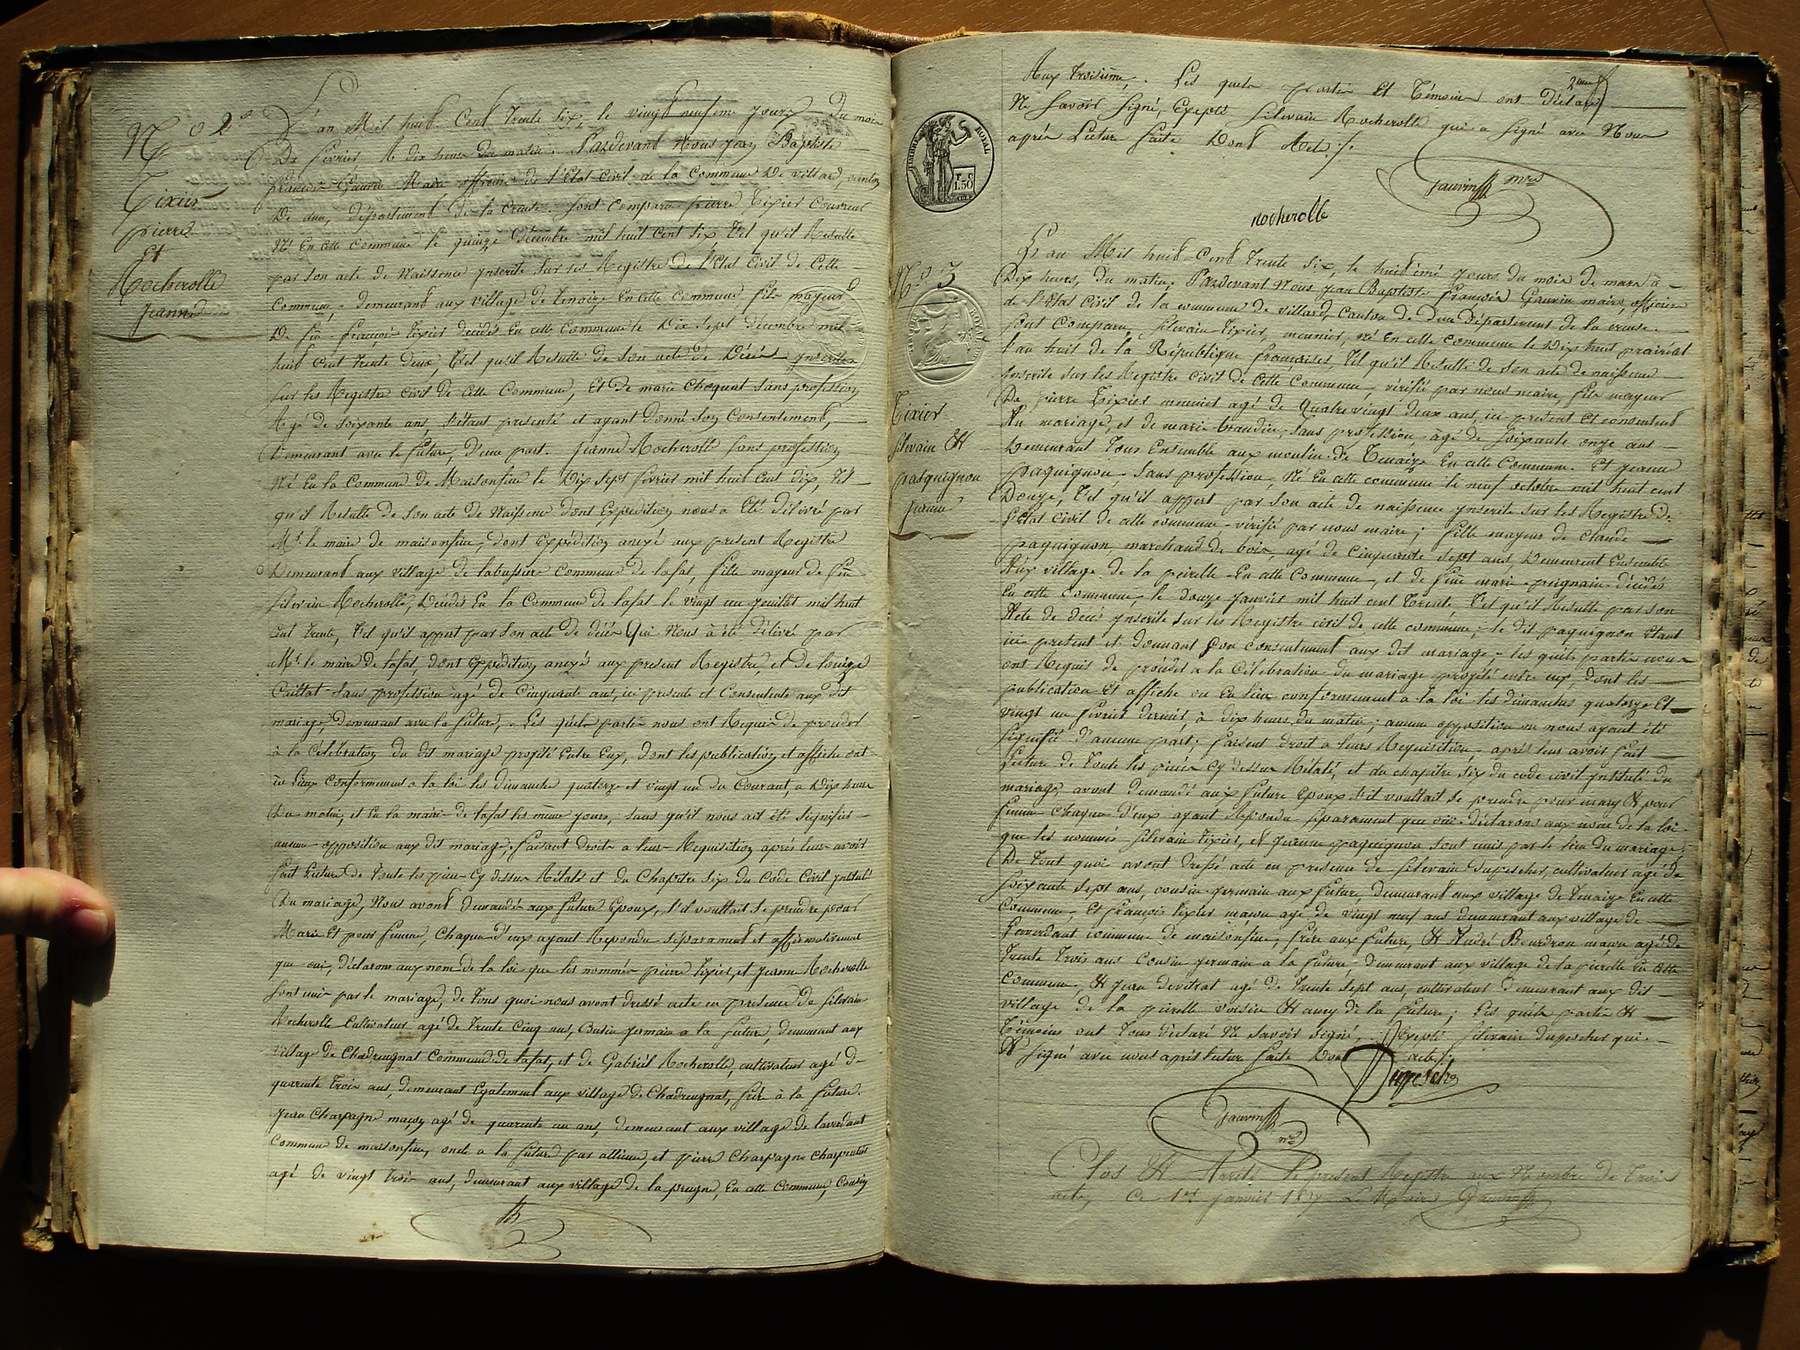 N.o 2.
Tixier
pierre
Et
Rocherolle
jeanne
L'an Mil huit Cent trente Six, le vingt neufieme jours du mois
De fevrier à dix heures du matin. Pardevant Nous jean Baptiste
françois Gauvin Maire officier de l'Etat Civil de la Commune De villard, canton
De dun, département de la Creuse. Sont Comparu pierre Tixier Couvreur
Né En cette Commune le quinze Décembre mil huit cent six, tel qu'il Resulte
par son acte de Naissence ynscrite Sur les Registre de l'Etat Civil de Cette
Commune, demeurant aux village de Tenaize En cette Commune fils mayeur
De feu françois Tixier décédés En cette Commune le Dix Sept décembre mil
huit cent trente deux, tel qu'il Resulte de Son acte de Décès ynscritte
Sur les Registre civil de Cette Commune, Et de marie Choquat Sans profession
Agé de soixante ans, S'étant presenté et ayant Donné Son Consentement,
Demeurant avec le future, D'une part. jeanne Rocherolle Sans profession
Né En la Commune de Maisonfeine le Dix Sept fevrier mil huit Cent dix, tel
qu'il Resulte de Son acte de Naissence dont Expedition nous a Eté délivré par
Mr. le maire de maisonfeine, dont Expédition anexé aux present Registre
Demeurant aux village de labussiere commune de lafat, fille mayeur de feu
Silvain Rocherolle, Décédés En la Commune de lafat le vingt un juillet mil huit
cent trente, tel qu'il appert par Son acte de décès Qui Nous à été Délivré par
Mr. le maire de lafat dont Expedition anexé aux present Registre, et de louize
Caillat Sans profession agé de Cinquante ans, ici presente et Consentente aux dit
mariage, demeurant avec la future. Les quels partie nous ont Requis de proceder
à la Célébration du dit mariage projeté Entre Eux, Dont les publication et affiche ont
eu lieux conformement a la loi les dimanche quatorze et vingt un du Courant, a Dix heures
Du matin, et En la mairie de lafat les même jours, Sans qu'il nous ait été Signifié
aucune opposition aux dit mariage, faisant droit a leur Requisition, après leur avoir
fait lecture de toute les piece Cy dessus Relaté et du Chapitre Six du Code Civil yntitulé
Du mariage, Nous avont demandé aux future Epoux, S'il voullait Se prendre pour
Marie Et pour femme, Chaqun D'eux ayant Repondu Séparament et affirmativement
que oui, déclarons aux nom de la loi que les nommés pierre Tixier, et jeanne Rocherolle
Sont unie par le mariage, de tous quoi nous avont dressé acte en presence de Silvain
Rocherolle Cultivateur, agé de Trente Cinq ans, Cousin Germain a la future, demeurant aux
Village de Chadreugnat commune de lafat, et de Gabriel Rocherolle, cultivateur agé de
quarente Trois ans, demeurant Egalement aux village de Chadreugnat, frere à la future.
jean Charpagne maçon agé de quarente un ans, demeurant aux village de laverdant
Commune de maisonfeine, oncle a la future par alliance, et pierre Charpagne Charpentier
agé de vingt Trois ans, demeurant aux village de la preugne En cette Commune, Cousin
2eme
Aux Troisième. Les quels partie Et Témoins ont Déclaré
Ne Savoir Signé, Exepté Silvain Rocherolle qui a Signé avec Nous
après Lecture faite Dont Acte ./.
Gauvin mre
rocherolle
TIMBRE ROYAL
1.50
N.o 3
Tixier
Silvain Et
pasquignon
jeanne
L'an Mil huit Cent trente Six, le huitième jours du mois de mars à
Dix heures, du matin, Pardevant Nous jean Baptiste françois Gauvin maire, officier
de l'Etat Civil de la commune de villard, Canton de dun Département de la creuse.
Sont Comparu, Silvain Tixier, meunier, né En cette commune le Dix huit prairial
l'an huit de la République francaise, Tel qu'il Resulte de Son acte de naissence
ynscrite sur les Registre Civil de Cette Commune, vérifié par nous maire, fils mayeur
De pierre Tixier meunier agé de Quatre vingt deux ans, ici present Et consentent
Au mariage, et de marie baudin, Sans profession agé de Soixante onze ans
Demeurant tous Ensemble aux moulin de Tenaize En cette Commune. Et jeanne
paquignon Sans profession, Né En cette commune le neuf octobre mil huit cent
Douze, Tel qu'il appert par Son acte de naissence ynscrite sur les Registre de
l'Etat Civil de cette commune vérifié par nous maire, fille mayeur de claude
paquignon, marchand de bois, agé de Cinquante Sept ans, Demeurent Ensemble
Aux village de la peirelle En cette Commune, et de feue marie preignain décédés
En cette Commune le Douze janvier mil huit cent Trente, Tel qu'il Resulte par son
Acte de décès ynscrite Sur les Registre civil de cette commune, le dit paquignon Etant
ici present et donnant Son consentement aux dit mariage. les quels partie nous
ont Requis de proceder a la Célébration du mariage projeté entre eux, dont les
publication Et affiche ou En lieu conformement à la loi les dimanches quatorze Et
vingt un fevrier dernier, à dix heures, du matin; aucune opposition ne nous ayant été
Signifié d'aucune part; faisent droit à leurs Requisition; après leur avoir fait
Lecture de toute les pieces Cy dessus Rélaté, et du chapitre Six du code civil yntitulé du
mariage, avont demandé aux future Epoux S'il voullait Se prendre pour mary Et pour
femme, Chaqun d'eux ayant Repondu Séparament que oui. déclarons aux nom de la loi
que les nommés Silvain Tixier, et jeanne paquignon sont unis par le lien du mariage.
De Tout quoi avont dressé acte en presence de Silvain Dupescher, cultivateur agé de
Soixante Sept ans, cousin germain aux future, demeurant aux village de Tenaize En cette
Commune, Et françois Tixier maçon agé de vingt neuf ans demeurant aux village de
laverdant commune de maisonfeine, frère aux future, Et André Bourdron maçon agé de
Trente Trois ans Cousin germain a la future, demeurant aux village de la peirelle En cette
commune, Et jean devitrat agé de Trente Sept ans, cultivateur demeurant aux dit
village de la peirelle voisin Et amy de la future; Les quels partie Et
Témoins ont tous déclaré Ne Savoir Signé, Exepté Silvain Dupescher qui
A Signé avec nous après lecture faite Dont acte ./.
Dupescher
Gauvin mre
Clos Et Arreté le present Registre aux Nombre de Trois
actes, Ce 1er janvier 1837 Le Maire Gauvin